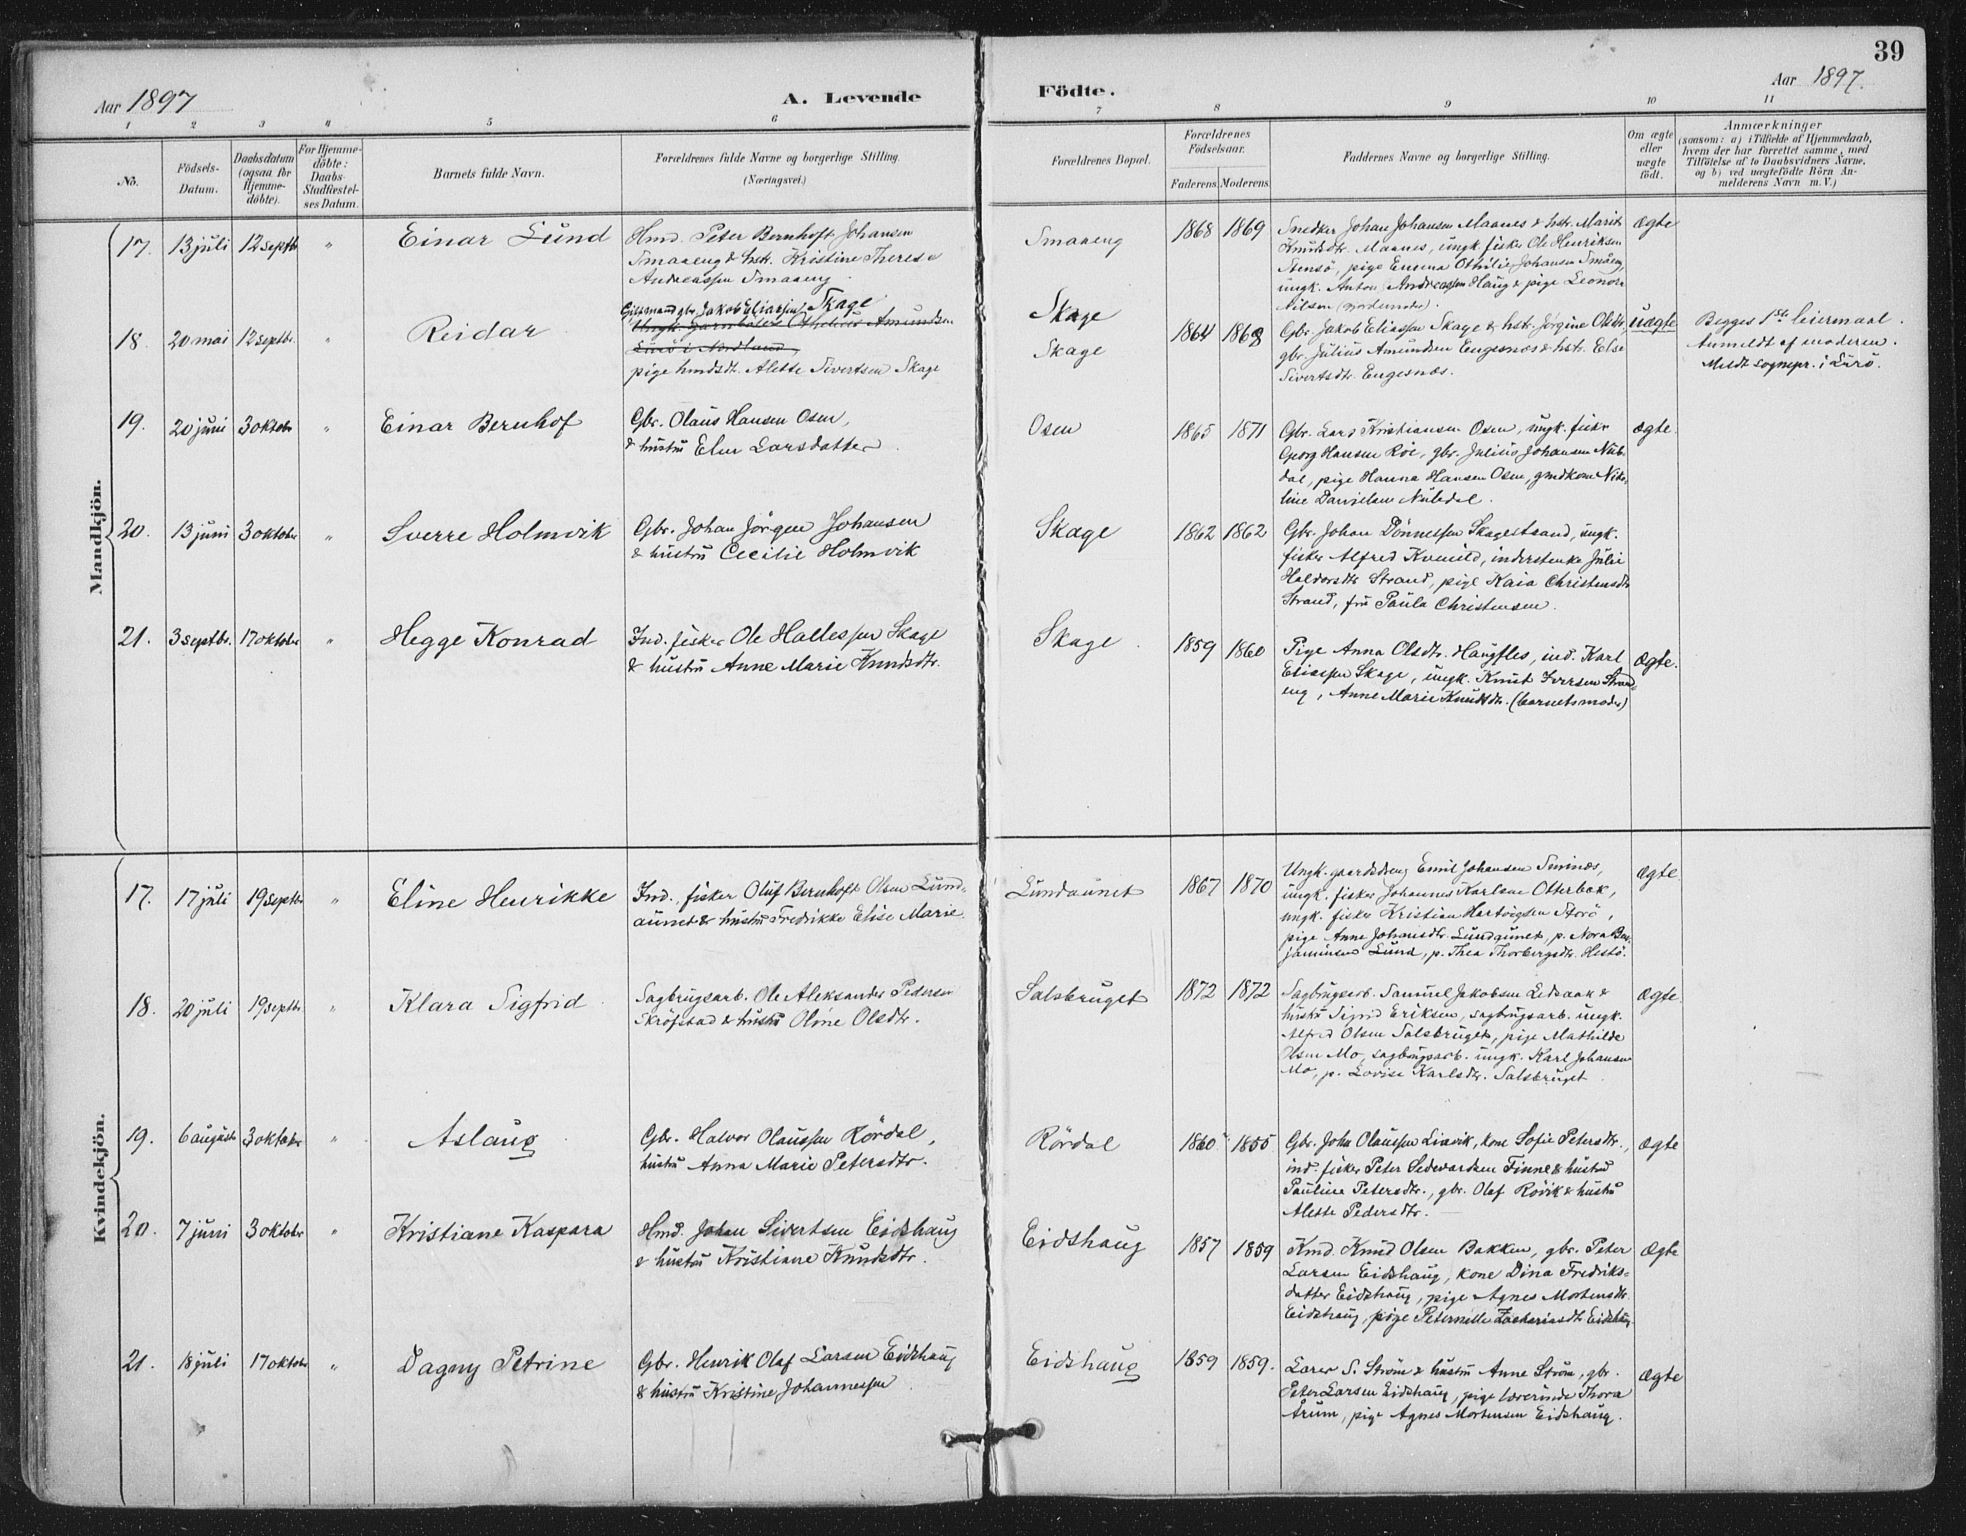 39
Aar 1897
A. Levende
Födte.
Aar 1897.
1 2 3 4 5 6 7 8 9 10 11
No.
Födsels-
Datum.
Daabsdatum
(ogsaa for
Hjemme-
döbte).
For Hjemme-
döbte:
Daabs-
Stadfæstel-
ses Datum.
Barnets fulde Navn.
Forældrenes fulde Navne og borgerlige Stilling.
(Næringsvei.)
Forældrenes Bopæl.
Forældrenes
Födselsaar.
Faderens
Moderens
Faddernes Navne og borgerlige Stilling.
Om ægte
eller
uægte
födt.
Anmærkninger
(saasom: a) i Tilfælde af Hjemmedaab,
hvem der har forrettet samme, med
Tilföielse af to Daabsvidners Navne,
og b) ved uægtefödte Börn An-
melderens Navn m. V.)
Mandkjön.
17. 13 juli 12 septb " Einar Lund
Hmd. Peter Bernhoft Johansen
Smaaeng & hstr. Kristine Therese
Andreassen Smaaeng.
Smaaeng 1868 1869
Snedker Johan Johansen Maanes & hstr. Marit
Knudsdtr. Maanes, ungk. fisker Ole Henriksen
Stensö, pige Emma Othilie Johansen Småeng,
ungk. Anton Andreassen Haug & pige Leonora
Nilsen
ægte
18. 20 mai 12 septbr. " Reidar
Giftmand gbr. Jakob Eliassen Skage
Amundsen
Lurö i Nordland,
pige hmdsdt. Alette Sivertsen Skage
Skage
Skage
1864 1868
Gbr. Jakob Eliassen Skage & hst. Jörgine Olsdtr,
gbr. Julius Amundsen Engesnæs & hstr. Else
Sivertsdtr. Engesnæs.
uægte
Begges 1ste leiermaal.
Anmeldt af moderen.
Meldt sognepr. i Lurö.
19. 20 juni 3 oktobr " Einar Bernhof
Gbr. Olaus Hansen Osen,
& hustru Elen Larsdatter.
Osen 1865 1871
Gbr. Lars Kristiansen Osen, ungk. fisker
Georg Hansen Roe, gbr. Julius Johansen Nub-
dal, pige Hanna Hansen Osen, gmdkone Niko-
line Danielsen Nubdal.
ægte.
20. 13 juni 3 oktober " Sverre Holmvik
Gbr. Johan Jörgen Johansen
& hustru Cecilie Holmvik
Skage 1862 1862
Gbr. Johan Dönnessen Skagestrand, ungk.
fisker Alfred Kveuld, inderstenke Julie
Haldorsdtr Strand, pige Kaia Christensdtr
Strand, fru Paula Christensen.
21. 3 septbr. 17 oktober " Hegge Konrad
Ind. fisker Ole Hallessen Skage
& hustru Anne Marie Knudsdtr.
Skage. 1859 1860
Pige Anna Olsdtr. Haugfles, ind. Karl
Eliassen Skage, ungk. Knut Iversen Strand-
eng, Anne Marie Knudsdtr. (barnets moder)
ægte.
Kvindekjön.
17. 17 juli 19 septbr " Eline Henrikke
Ind. fisker Oluf Bernhoft Olsen Lund-
aunet & hustru Fredrikke Elise Marie.
Lundaunet 1867 1870
Ungk. gaardsdreng Emil Johansen
ungk. fisker Johannes Karlsen Otterbek,
ungk. fisker Kristian Hartvigsen Storö,
pige Anne Johansdtr. Lundaunet, p. Nora Ben-
jaminsen Lund, p. Thea Thorbergsdtr. Hestö.
ægte
18. 20 juli 19 septbr " Klara Sigfrid
Sagbrugsarb. Ole Aleksander Pedersen
Skrösstad & hustru Oline Olsdtr.
Salsbruget 1872 1872
Sagbrugsarb. Samuel Jakobsen Ledsaak &
hustru Sigrid Eriksen, sagbrugsarb. ungk.
Alfred Olsen Salsbruget, pige Mathilde
Olsen Mo, sagbrugsarb. ungk. Karl Johansen
Mo, p. Lovise Karlsdtr. Salsbruget.
ægte
19. 6 august 3 oktober " Aslaug
Gbr. Halvor Olaussen Rördal,
hustru Anna Marie Petersdtr.
Rördal 1860 1855
Gbr. John Olaussen Liavik, kone Sofie Petersdtr.,
ind. fisker Peter Sedevardsen Finne & hustru
Pauline Petersdtr., gbr. Olaf Rövik & hustru
Alette Pedersdtr.
ægte
20. 7 juni 3 oktober " Kristiane Kaspara
Hmd. Johan Sivertsen Eidshaug
& hustru Kristiane Knudsdtr.
Eidshaug 1857 1859
Kmd. Knud Olsen Bakken, gbr. Peter
Larsen Eidshaug, kone Dina Fredriks-
datter Eidshaug, pige Agnes Mortensdtr.
Eidshaug, pige Peternelle Zachariasdtr Eidshaug
ægte
21. 18 juli 17 oktobr " Dagny Petrine
Gbr. Henrik Olaf Larsen Eidshaug
& hustru Kristine Johannessen.
Eidshaug 1859 1859.
Lærer S. Ström & hustru Anne Ström, gbr.
Peter Larsen Eidshaug, pige lærerinde Thora
Arum, pige Agnes Mortensen Eidshaug.
ægte